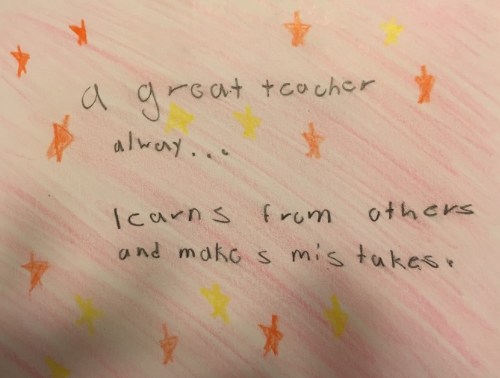 a great teacher
alway...
learns from others
and makes mistakes.